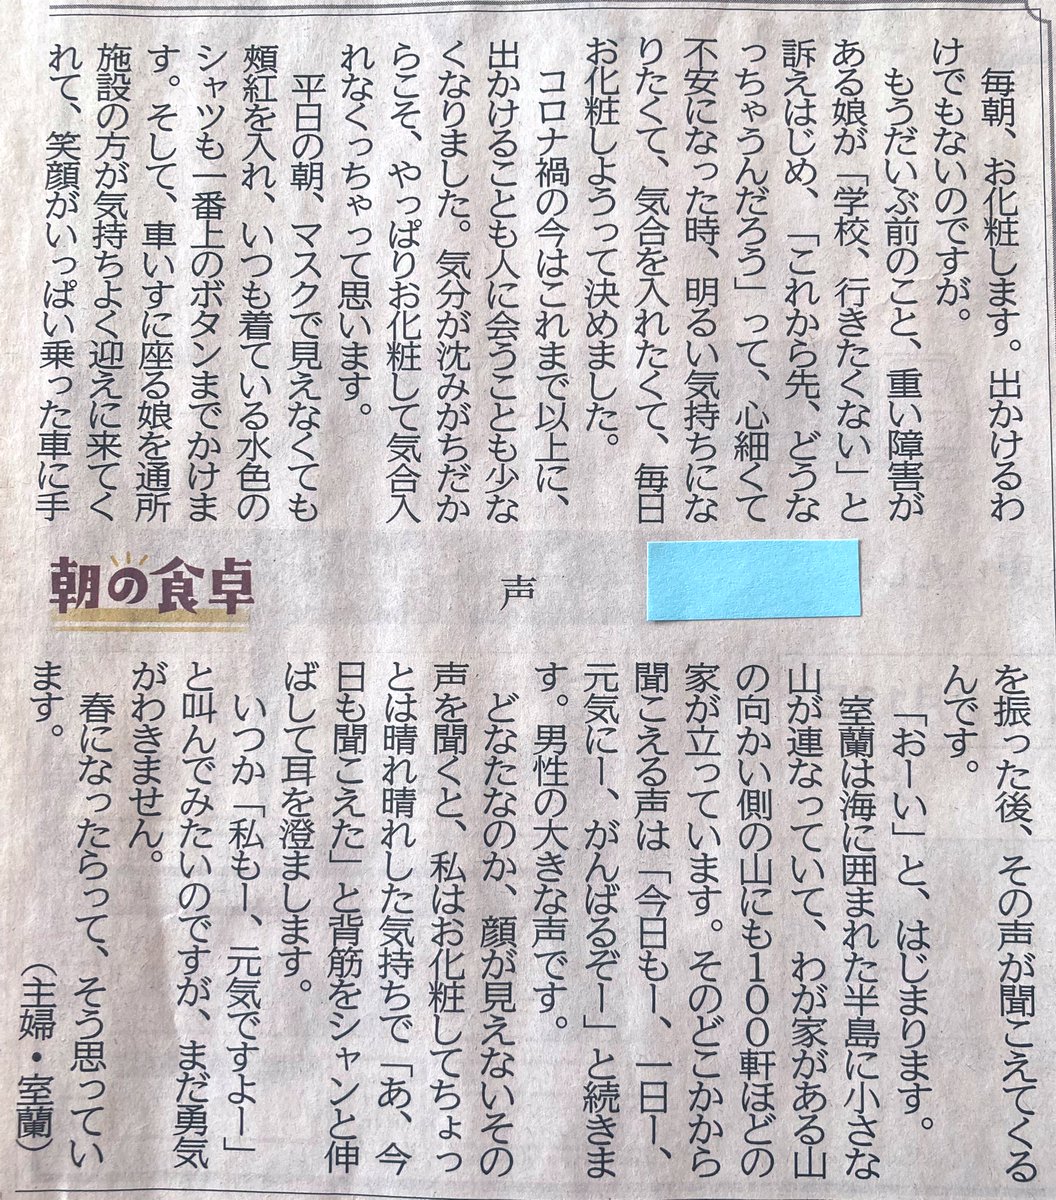 毎朝、お化粧します。出かけるわ
けでもないのですが。
もうだいぶ前のこと、重い障害が
ある娘が「学校、行きたくない」と
訴えはじめ、「これから先、どうな
っちゃうんだろう」って、心細くて
不安になった時、明るい気持ちにな
りたくて、気合を入れたくて、毎日
お化粧しようって決めました。
コロナ禍の今はこれまで以上に、
出かけることも人に会うことも少な
くなりました。気分が沈みがちだか
らこそ、やっぱりお化粧して気合入
れなくっちゃって思います。
平日の朝、マスクで見えなくても
頰紅を入れ、いつも着ている水色の
シャツも一番上のボタンまでかけま
す。そして、車いすに座る娘を通所
施設の方が気持ちよく迎えに来てく
れて、笑顔がいっぱい乗った車に手
声
朝の食卓
を振った後、その声が聞こえてくる
んです。
「おーい」と、はじまります。
室蘭は海に囲まれた半島に小さな
山が連なっていて、わが家がある山
の向かい側の山にも100軒ほどの
家が立っています。そのどこかから
聞こえる声は「今日もー、一日ー、
元気にー、がんばるぞー」と続きま
す。男性の大きな声です。
どなたなのか、顔が見えないその
声を聞くと、私はお化粧してちょっ
とは晴れ晴れした気持ちで「あ、今
日も聞こえた」と背筋をシャンと伸
ばして耳を澄まします。
いつか「私もー、元気ですよー」
と叫んでみたいのですが、まだ勇気
がわきません。
春になったらって、そう思ってい
ます。
（主婦・室蘭）